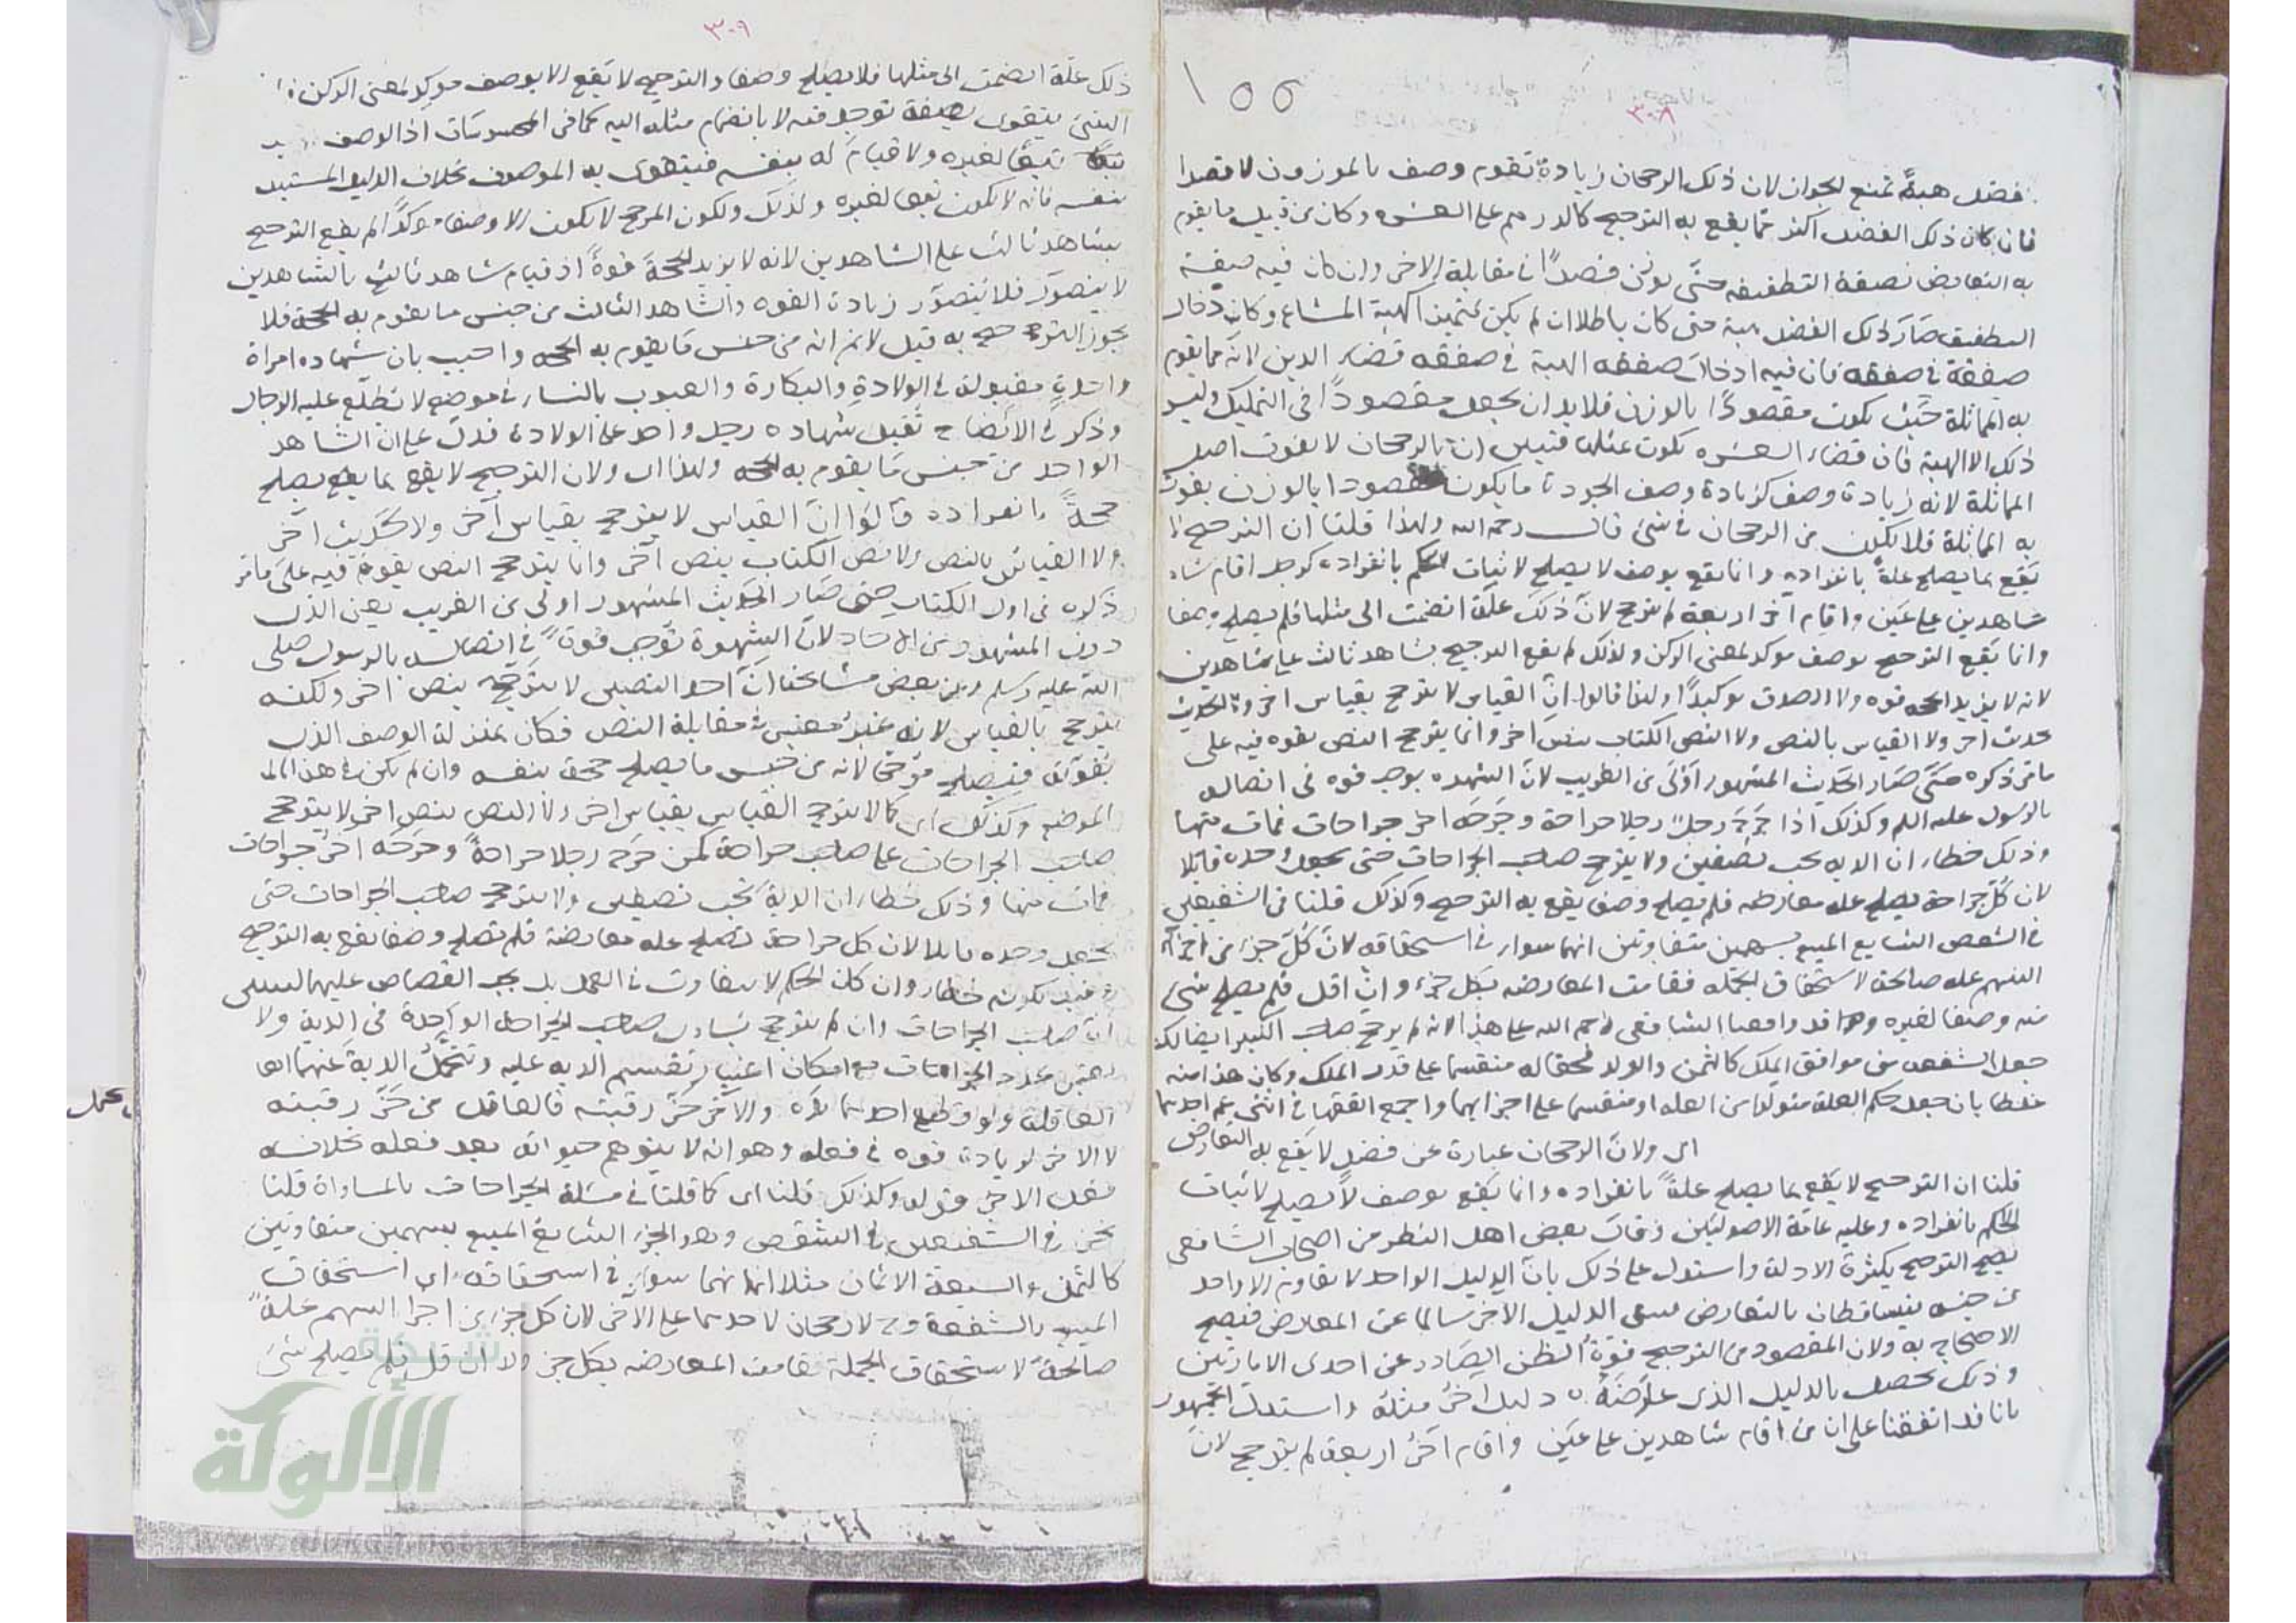 ١٥٥
٣٠٨
فضل هبةً تمنع الجواز لان ذلك الرجحان زيادة تقوم وصف بالموزون لا مقصدا
فان كان ذلك الفضل اكثر مما يقع به الترجيح كالدرهم على العشرة وكان من قبيل ما يقوم
به التعارض نصفة التطفيفه حتى يوزن قصدًا في مقابلة الاخر وان كان فيه صفة
التطفيف صار ذلك الفضل هبة حتى كان باطلا ان لم يكن تمتيز الهبة المشاع وكان ادخال
صفقة في صفقة فان فيه ادخال صفقه الهبة في صفقه قضاء الدين لانه مما يقوم
به المماثلة حيث يكون مقصودًا بالوزن فلا بد ان يجعل مقصودًا في التمليك وليس
ذلك الا الهبة فان قضاء العشره يكون بمثلها فتبين ان بالرجحان لا يفوت اصل
المماثلة لانه زيادة وصف كزيادة وصف الجودة ما يكون مقصودا بالوزن يفوت
به المماثلة فلا يكون من الرجحان في شئ قال رحمه الله ولهذا قلنا ان الترجيح لا
يقع بما يصلح علةً بانفراده وانما يقع بوصف لا يصلح لاثبات الحكم بانفراده كرجل اقام شا
شاهدين على عين واقام آخر اربعة لم يترجح لان ذلك علة انضمت الى مثلها فلم يصلح وصفا
وانما يقع الترجيح بوصف موكد لمعنى الركن ولذلك لم يقع الترجيح بشاهد ثالث على شاهدين
لانه لا يزيد الحجه قوه ولا الصدق توكيدًا ولهذا قالوا ان القياس لا يترجح بقياس اخر ولا الحديث
بحديث اخر ولا القياس بالنص ولا النص الكتاب بنص آخر وانما يترجح النص بقوه فيه على
ما مر ذكره حتى صار الحديث المشهور اولى من الغريب لان الشهره يوجب قوه في اتصاله
بالرسول عليه السلم وكذلك اذا جرح رجل رجلا جراحة وجرحه اخر جراحات فمات منها
وذلك خطاء ان الديه يجب نصفين ولا يترجح صاحب الجراحات حتى يجعل وحده قاتلا
لان كل جراحة يصلح عله معارضه فلم يصلح وصفا يقع به الترجيح وكذلك قلنا في الشفيعين
في الشقص الشايع المبيع بسهمين متفاوتين انهما سواء في استحقاقه لان كل جزء من اجزاء
السهم عله صالحة لاستحقاق الجمله فقامت المعارضه بكل جزء وان اقل فلم يصلح شئ
منه وصفا لغيره وقد وافقنا الشافعى رحمه الله على هذا لانه لم يرجح صاحب الكثير ايضا لكنه
جعل الشفعه من موافق الملك كالثمن والولد فجعله منقسما على قدر الملك وكان هذا منه
غلطا بان جعل حكم العلة متولدا من العله او منقسما على اجزايها واجمع الفقها في ابنى عم احدهما
اى ولان الرجحان عبارة عن فضل لا يقع به التعارض
قلنا ان الترجيح لا يقع بما يصلح علةً بانفراده وانما يقع بوصف لا يصلح لاثبات
الحكم بانفراده وعليه عامة الاصوليين وقال بعض اهل النظر من اصحاب الشافعى
يصح الترجيح بكثرة الادلة واستدل على ذلك بان الدليل الواحد لا يقاومه الا واحد
من جنسه يتساقطان بالتعارض فيبقى الدليل الاخر سالما عن المعارض فيصح
الاحتجاج به ولان المقصود من الترجيح قوة الظن الصادر عن احدى الامارتين
وذلك يحصل بالدليل الذى عارضه دليل آخر مثله واستدل الجمهور
بانا قد اتفقنا على ان من اقام شاهدين على عين واقام آخر اربعة لم يترجح لان
٣٠٩
ذلك علة انضمت الى مثلها فلا يصلح وصفا والترجيح لا يقع الا بوصف موكد لمعنى الركن اذا
الشئ يتقوى بصفة توجد فيه لا بانضمام مثله اليه كما في المحسوسات اذ الوصف
تبعًا لغيره ولا قيام له بنفسه فيتقوى به الموصوف بخلاف الدليل المستبد
بنفسه فانه لا يكون تبعا لغيره ولذلك ولكون المرجح لا يكون الا وصفا موكدًا لم يقع الترجيح
بشاهد ثالث على الشاهدين لانه لا يزيد الحجة قوةً اذ قيام شاهد ثالث بالشاهدين
لا يتصور فلا يتصور زيادة القوه والشاهد الثالث من جنس ما يقوم به الحجة فلا
يجوز الترجيح به قيل لا نم انه من جنس ما يقوم به الحجه واجيب بان شهاده امراة
واحدة مقبولة في الولادة والبكارة والعيوب بالنساء في موضع لا تطلع عليه الرجال
وذكر في الايضاح تقبل شهاده رجل واحد على الولادة فدل على ان الشاهد
الواحد من جنس ما يقوم به الحجه ولهذا اى ولان الترجيح لا يقع بما يصلح
حجةً بانفراده قالوا ان القياس لا يترجح بقياس آخر ولا حديث آخر
ولا القياس بالنص ولا نص الكتاب بنص آخر وانما يترجح النص بقوة فيه على ما مر
ذكره في اول الكتاب حتى صار الحديث المشهور اولى من الغريب يعنى الذى
دون المشهور من الاحاد لان الشهرة توجب قوةً في اتصاله بالرسول صلى
الله عليه وسلم وعن بعض مشايخنا ان احد النصين لا يترجح بنص اخر ولكنه
يترجح بالقياس لانه غير معتبر في مقابلة النص فكان بمنزلة الوصف الذى
يقويه فيصلح مرجحا لانه من جنس ما يصلح حجة بنفسه وان لم يكن في هذا
الموضع وكذلك اى كما لا يترجح القياس بقياس اخر ولا النص بنص اخر لا يترجح
صاحب الجراحات على صاحب جراحة كمن جرح رجلا جراحةً وجرحه آخر جراحات
فمات منها وذلك خطاء ان الدية تجب نصفين ولا يترجح صاحب الجراحات حتى
يجعل وحده قاتلا لان كل جراحة تصلح عله معارضة فلم تصلح وصفا يقع به الترجيح
وقيد بكونه خطاء وان كان الحكم لا يتفاوت في العمد بل يجب القصاص عليهما ليبين
ان صاحب الجراحات وان لم يترجح يساوى صاحب الجراحة الواحدة في الدية ولا
يعتبر عدد الجراحات مع امكان اعتبار تقسيم الديه عليه وتتحمل الدية عنهما
العاقلة ولو قطع احدهما يده والآخر حز رقبته فالقاتل من حز رقبته
لا الاخر لزيادة قوه في فعله وهو انه لا يتوهم حيوته بعد فعله بخلاف
فعل الاخر قوله وكذلك قلنا اى كما قلنا في مسئلة الجراحات بالمساواة قلنا
نحن في الشفيعين في الشقص وهو الجزء الشايع المبيع بسهمين متفاوتين
كالثمن والسبعة الاثمان مثلا انهما سواء في استحقاقه اى استحقاق
المبيع بالشفعة ولا رجحان لاحدهما على الاخر لان كل جزء من اجزا السهم علةً
صالحةً لاستحقاق الجملة فقامت المعارضه بكل جز ولا ان قل فلم يصلح شئ
شبكة
الألوكة
www.alukah.net